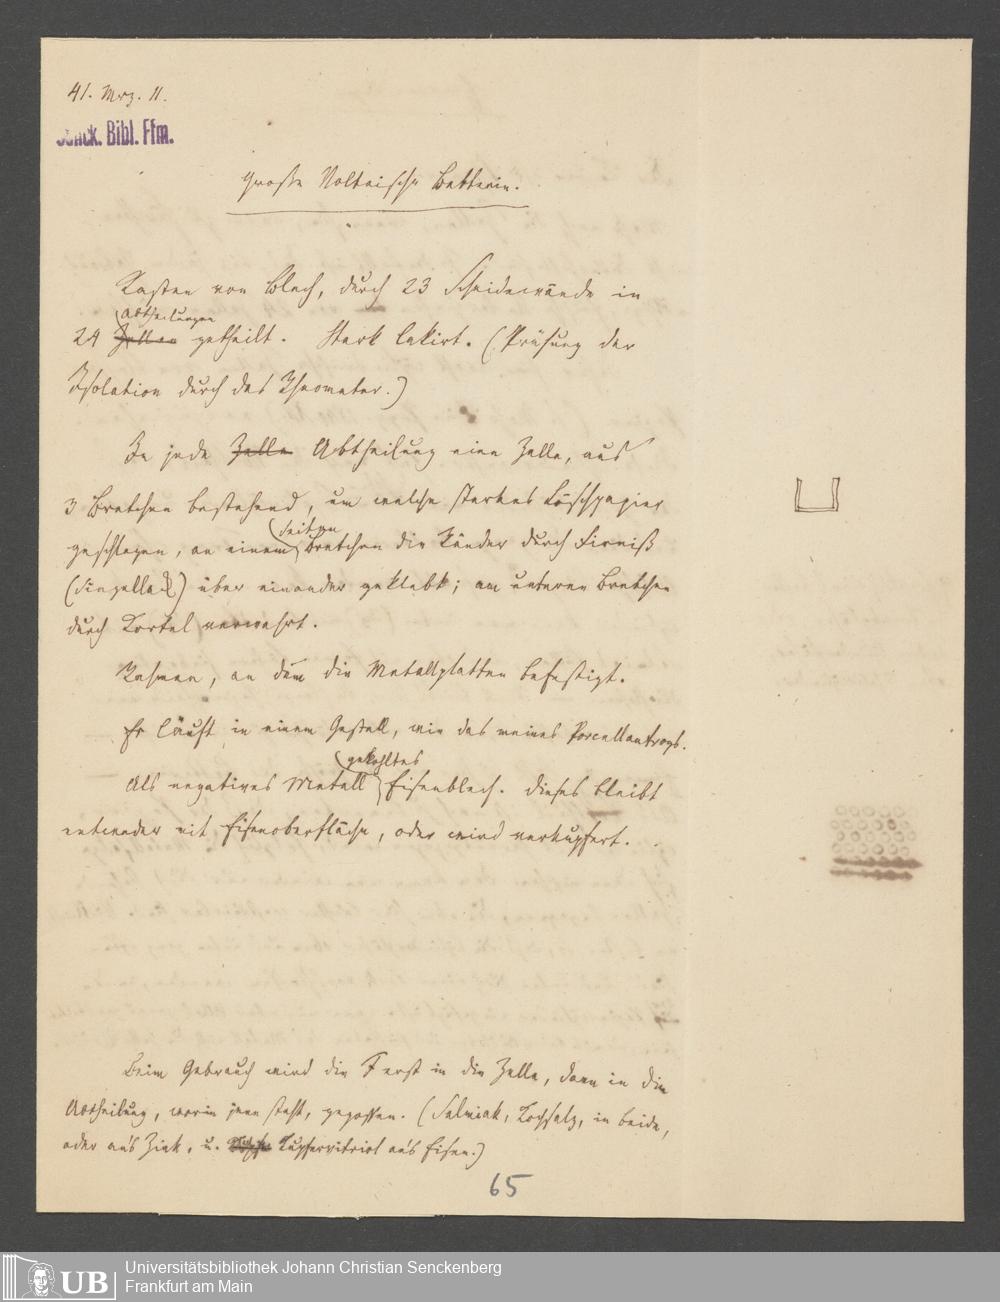 41. Mrz. 11.
Senck. Bibl. Ffm.
Große Voltaische Batterie.
Kasten von Blech, durch 23 Scheidewände in
Abtheilungen
24 Zellen getheilt. Stark lakirt. (Prüfung der
Isolation durch das Rheometer.)
In jede Zelle Abtheilung eine Zelle, aus
3 Bretchen bestehend, um welche starkes Löschpapier
Seiten
geschlagen, an einem Bretchen die Ränder durch Firniß
(Singellack) über einander geklebt; am unteren Bretchen
durch Kortel verwahrt.
Rahmen, an dem die Metallplatten befestigt.
Er läuft in einem Gestell, wie das meines Porcellantrogs.
gekohltes
Als negatives Metall Eisenblech. Dieses bleibt
entweder mit Eisenoberfläche, oder wird verkupfert.
Beim Gebrauch wird die F erst in die Zelle, dann in die
Abtheilung, worin jene steht, gegossen. (Salmiak, Kochsalz, in beide,
oder an's Zink, u. Kupfervitriol an's Eisen.)
65
UB
Universitätsbibliothek Johann Christian Senckenberg
Frankfurt am Main